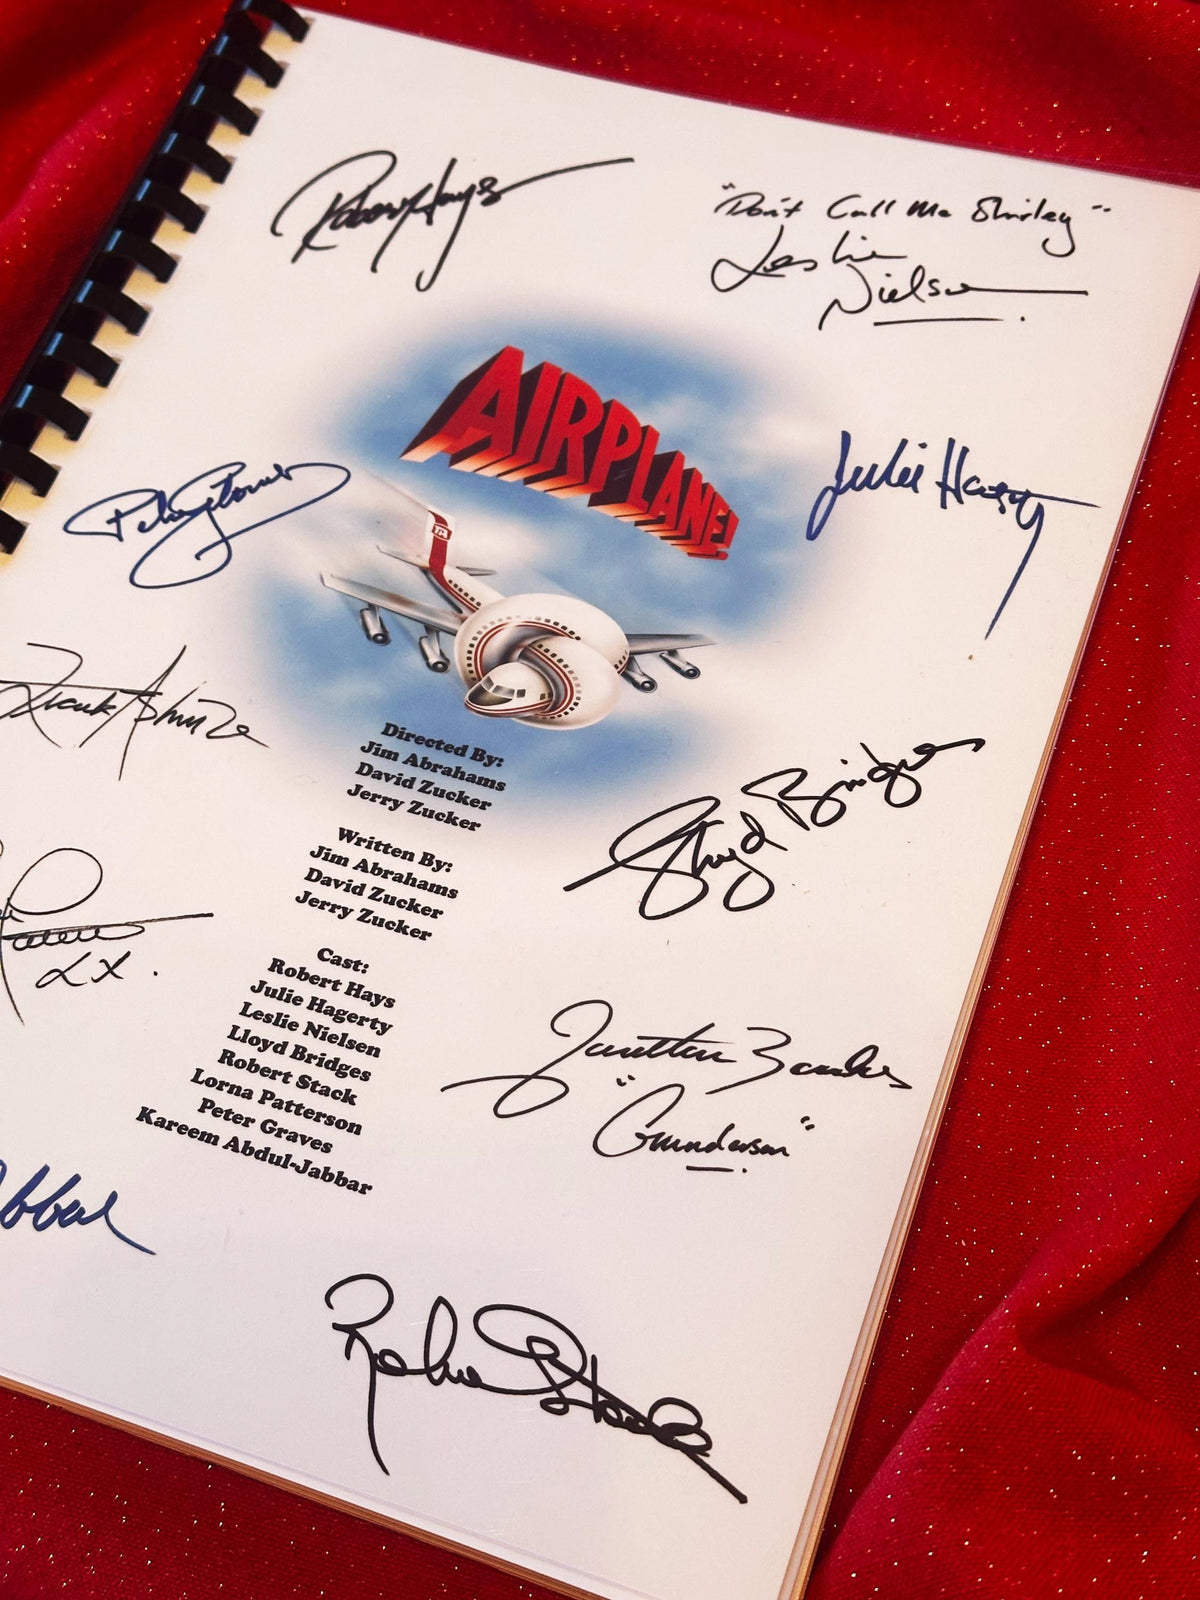 Robert Hays
"Don't Call Me Shirley"
Leslie
Nielsen
AIRPLANE!
Julie Hagerty
Peter Graves
Frank Ashmore
Directed By:
Jim Abrahams
David Zucker
Jerry Zucker
Lloyd Bridges
Written By:
Jim Abrahams
David Zucker
Jerry Zucker
XX.
Cast:
Robert Hays
Julie Hagerty
Leslie Nielsen
Lloyd Bridges
Robert Stack
Lorna Patterson
Peter Graves
Kareem Abdul-Jabbar
Jonathan Banks
"Gunderson"
Jabbar
Robert Stack